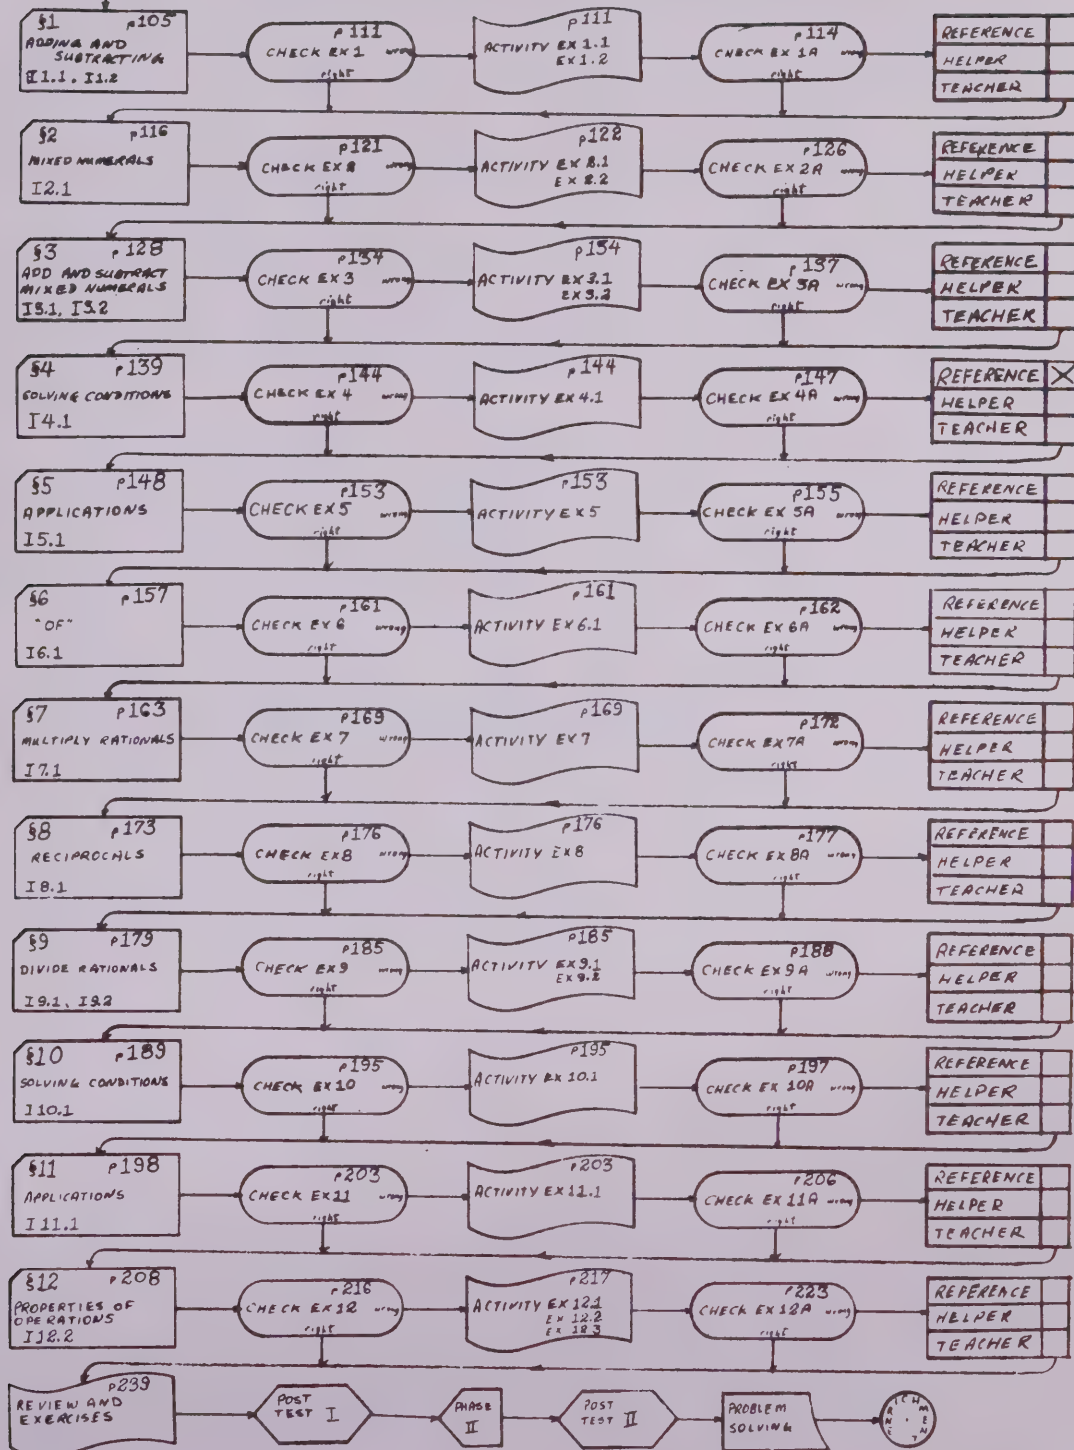 §1 p105
ADDING AND
SUBTRACTING
I1.1, I1.2
p111
CHECK EX 1 wrong
right
p111
ACTIVITY EX 1.1
EX 1.2
p114
CHECK EX 1A wrong
right
REFERENCE
HELPER
TEACHER
§2 p116
MIXED NUMERALS
I2.1
p121
CHECK EX 2 wrong
right
p122
ACTIVITY EX 2.1
EX 2.2
p126
CHECK EX 2A wrong
right
REFERENCE
HELPER
TEACHER
§3 p128
ADD AND SUBTRACT
MIXED NUMERALS
I3.1, I3.2
p134
CHECK EX 3 wrong
right
p134
ACTIVITY EX 3.1
EX 3.2
p137
CHECK EX 3A wrong
right
REFERENCE
HELPER
TEACHER
§4 p139
SOLVING CONDITIONS
I4.1
p144
CHECK EX 4 wrong
right
p144
ACTIVITY EX 4.1
p147
CHECK EX 4A wrong
right
REFERENCE X
HELPER
TEACHER
§5 p148
APPLICATIONS
I5.1
p153
CHECK EX 5 wrong
right
p153
ACTIVITY EX 5
p155
CHECK EX 5A wrong
right
REFERENCE
HELPER
TEACHER
§6 p157
"OF"
I6.1
p161
CHECK EX 6 wrong
right
p161
ACTIVITY EX 6.1
p162
CHECK EX 6A wrong
right
REFERENCE
HELPER
TEACHER
§7 p163
MULTIPLY RATIONALS
I7.1
p169
CHECK EX 7 wrong
right
p169
ACTIVITY EX 7
p172
CHECK EX 7A wrong
right
REFERENCE
HELPER
TEACHER
§8 p173
RECIPROCALS
I8.1
p176
CHECK EX 8 wrong
right
p176
ACTIVITY EX 8
p177
CHECK EX 8A wrong
right
REFERENCE
HELPER
TEACHER
§9 p179
DIVIDE RATIONALS
I9.1, I9.2
p185
CHECK EX 9 wrong
right
p185
ACTIVITY EX 9.1
EX 9.2
p188
CHECK EX 9A wrong
right
REFERENCE
HELPER
TEACHER
§10 p189
SOLVING CONDITIONS
I10.1
p195
CHECK EX 10 wrong
right
p195
ACTIVITY EX 10.1
p197
CHECK EX 10A wrong
right
REFERENCE
HELPER
TEACHER
§11 p198
APPLICATIONS
I11.1
p203
CHECK EX 11 wrong
right
p203
ACTIVITY EX 11.1
p206
CHECK EX 11A wrong
right
REFERENCE
HELPER
TEACHER
§12 p208
PROPERTIES OF
OPERATIONS
I12.2
p216
CHECK EX 12 wrong
right
p217
ACTIVITY EX 12.1
EX 12.2
EX 12.3
p223
CHECK EX 12A wrong
right
REFERENCE
HELPER
TEACHER
p239
REVIEW AND
EXERCISES
POST
TEST I
PHASE
II
POST
TEST II
PROBLEM
SOLVING
ENRICHMENT